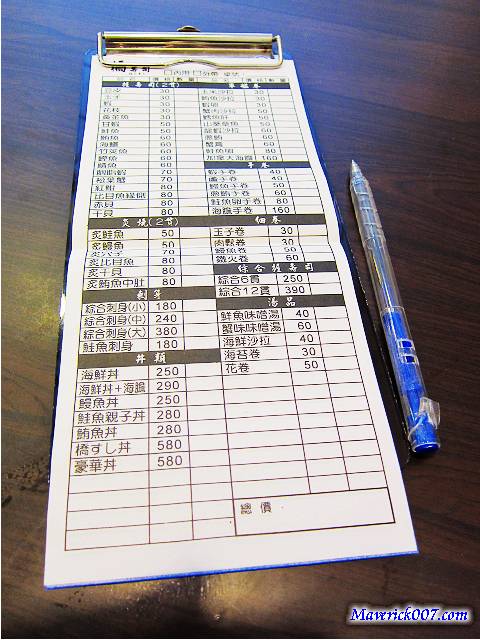 壽司 內用 外帶 桌號
價格 數量 價格 數量
握壽司(2貫)
豆皮 30
玉子 30
蝦 30
花枝 30
黃金魚 30
甘蝦 50
鮭魚 50
鮪魚 60
海鱺 60
竹筴魚 60
鰹魚 60
鯖魚 60
松葉蟹 70
紅魽 80
比目魚緣側 80
赤貝 80
干貝 80
炙燒(2貫)
炙鮭魚 50
炙鰻魚 50
炙穴子 70
炙比目魚 80
炙干貝 80
炙鮪魚中肚 80
刺身
綜合刺身(小) 180
綜合刺身(中) 240
綜合刺身(大) 380
鮭魚刺身 180
丼類
海鮮丼 250
海鮮丼+海膽 290
鰻魚丼 250
鮭魚親子丼 280
鮪魚丼 280
橋すし丼 580
豪華丼 580
軍艦卷
玉米沙拉 30
鮪魚沙拉 30
蝦卵 30
蟹肉沙拉 30
鱈魚肝 50
龍蝦沙拉 60
蟹膏 60
鮭魚卵 80
加拿大海膽 160
手卷
蝦手卷 40
蘆手卷 40
鰻魚手卷 50
鮭魚卵手卷 80
海膽手卷 160
細卷
玉子卷 30
肉鬆卷 30
鰻魚卷 50
鐵火卷 60
綜合握壽司
綜合6貫 250
綜合12貫 390
湯品
鮮魚味噌湯 40
蟹味味噌湯 60
海鮮沙拉 40
海苔卷 30
花卷 50
總價
Maverick007.com